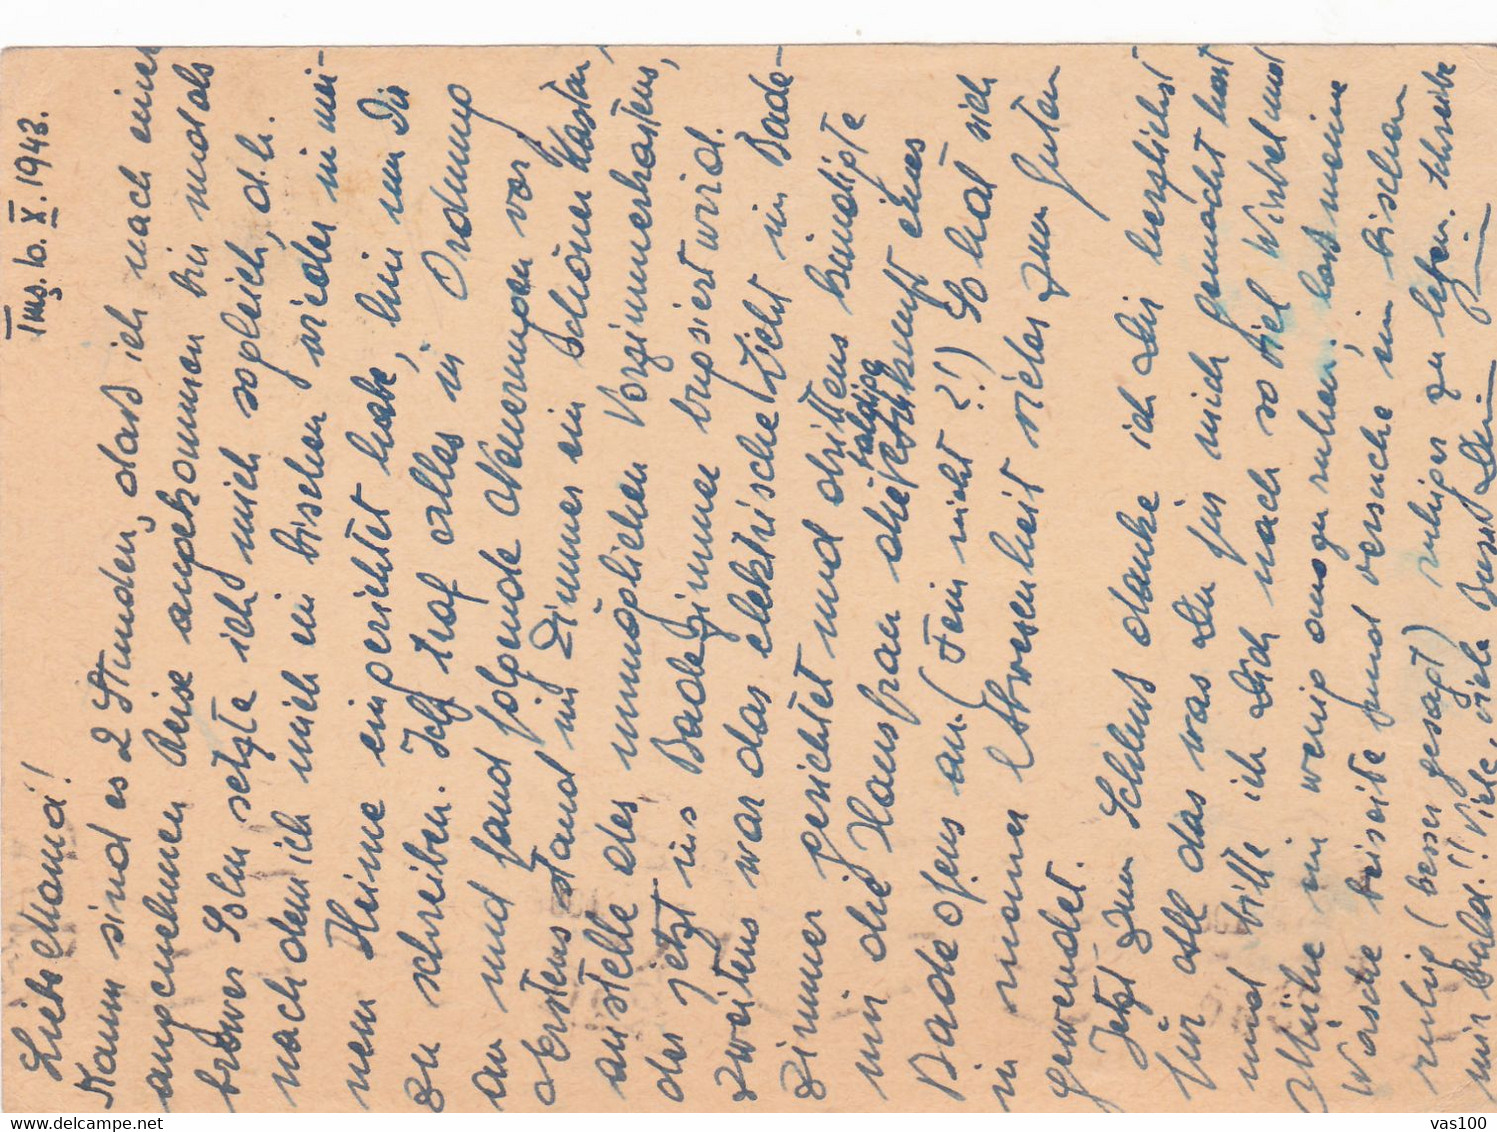 Tmș. 10. X. 1943.
Liebe Mama!
Kaum sind es 2 Stunden, daß ich nach einer
angenehmen Reise angekommen bin und als
braver Sohn setzte ich mich sogleich, d.h.
nachdem ich mich ein bischen wieder in mei-
nem Heime eingerichtet habe, hin um Dir
zu schreiben. Ich traf alles in Ordnung
an und fand folgende Neuerungen vor
Erstens stand im Zimmer ein schöner Kasten,
anstelle des unmöglichen Vorzimmerkastens,
der jetzt ins Badezimmer bugsiert wird.
Zweitens war das elektrische Licht im Bade-
zimmer gerichtet und drittens kündigte
mir die Hausfrau die baldige Ankunft eines
Badeofens an (Fein nicht?!) So hat sich
in meiner Abwesenheit vieles zum Guten
gewendet.
Jetzt zum Schluß danke ich Dir herzlichst
für all das was Du für mich gemacht hast
und bitte ich Dich nach so viel Wirbel und
Mühe ein wenig auszuruhen, laß meine
Wäsche beiseite und versuche ein bischen
ruhig (besser gesagt) ruhiger zu leben. Schreibe
mir bald!! Viele, viele Bussi Dein